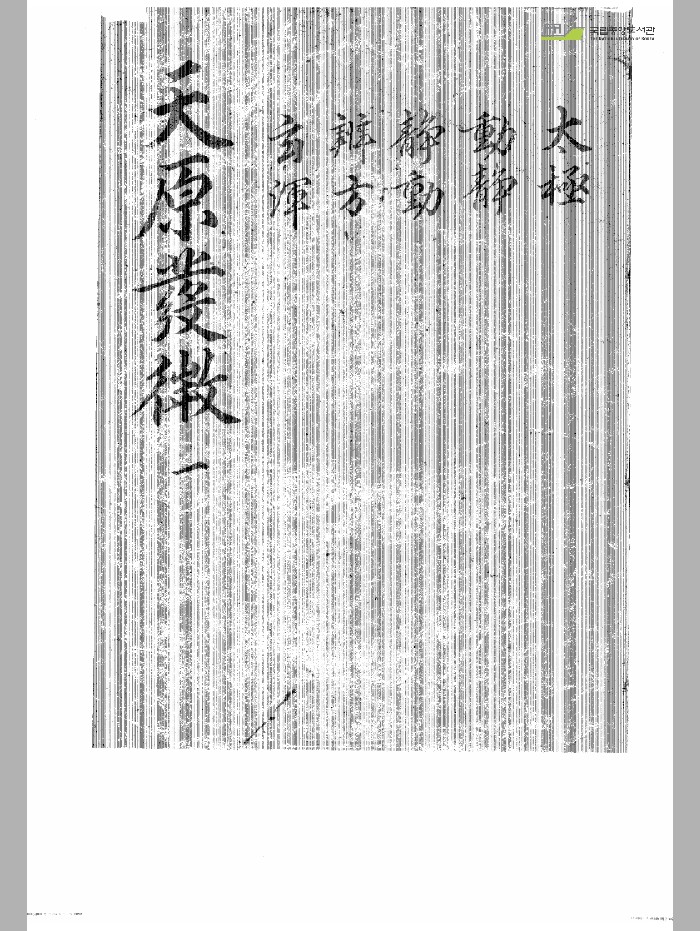 太極
動靜
靜動
辨方
玄渾
天原發微 一
국립중앙도서관